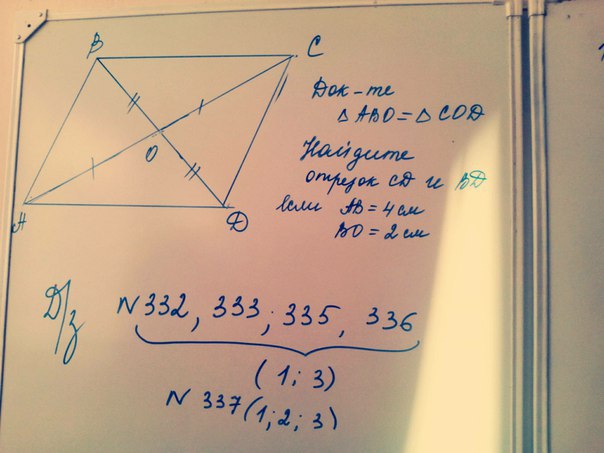 B
C
O
A
D
Док-те
△ABO = △COD
Найдите
отрезок CD и BD
если AB = 4 см
BO = 2 см
Д/з
N 332, 333; 335, 336
(1; 3)
N 337 (1; 2; 3)